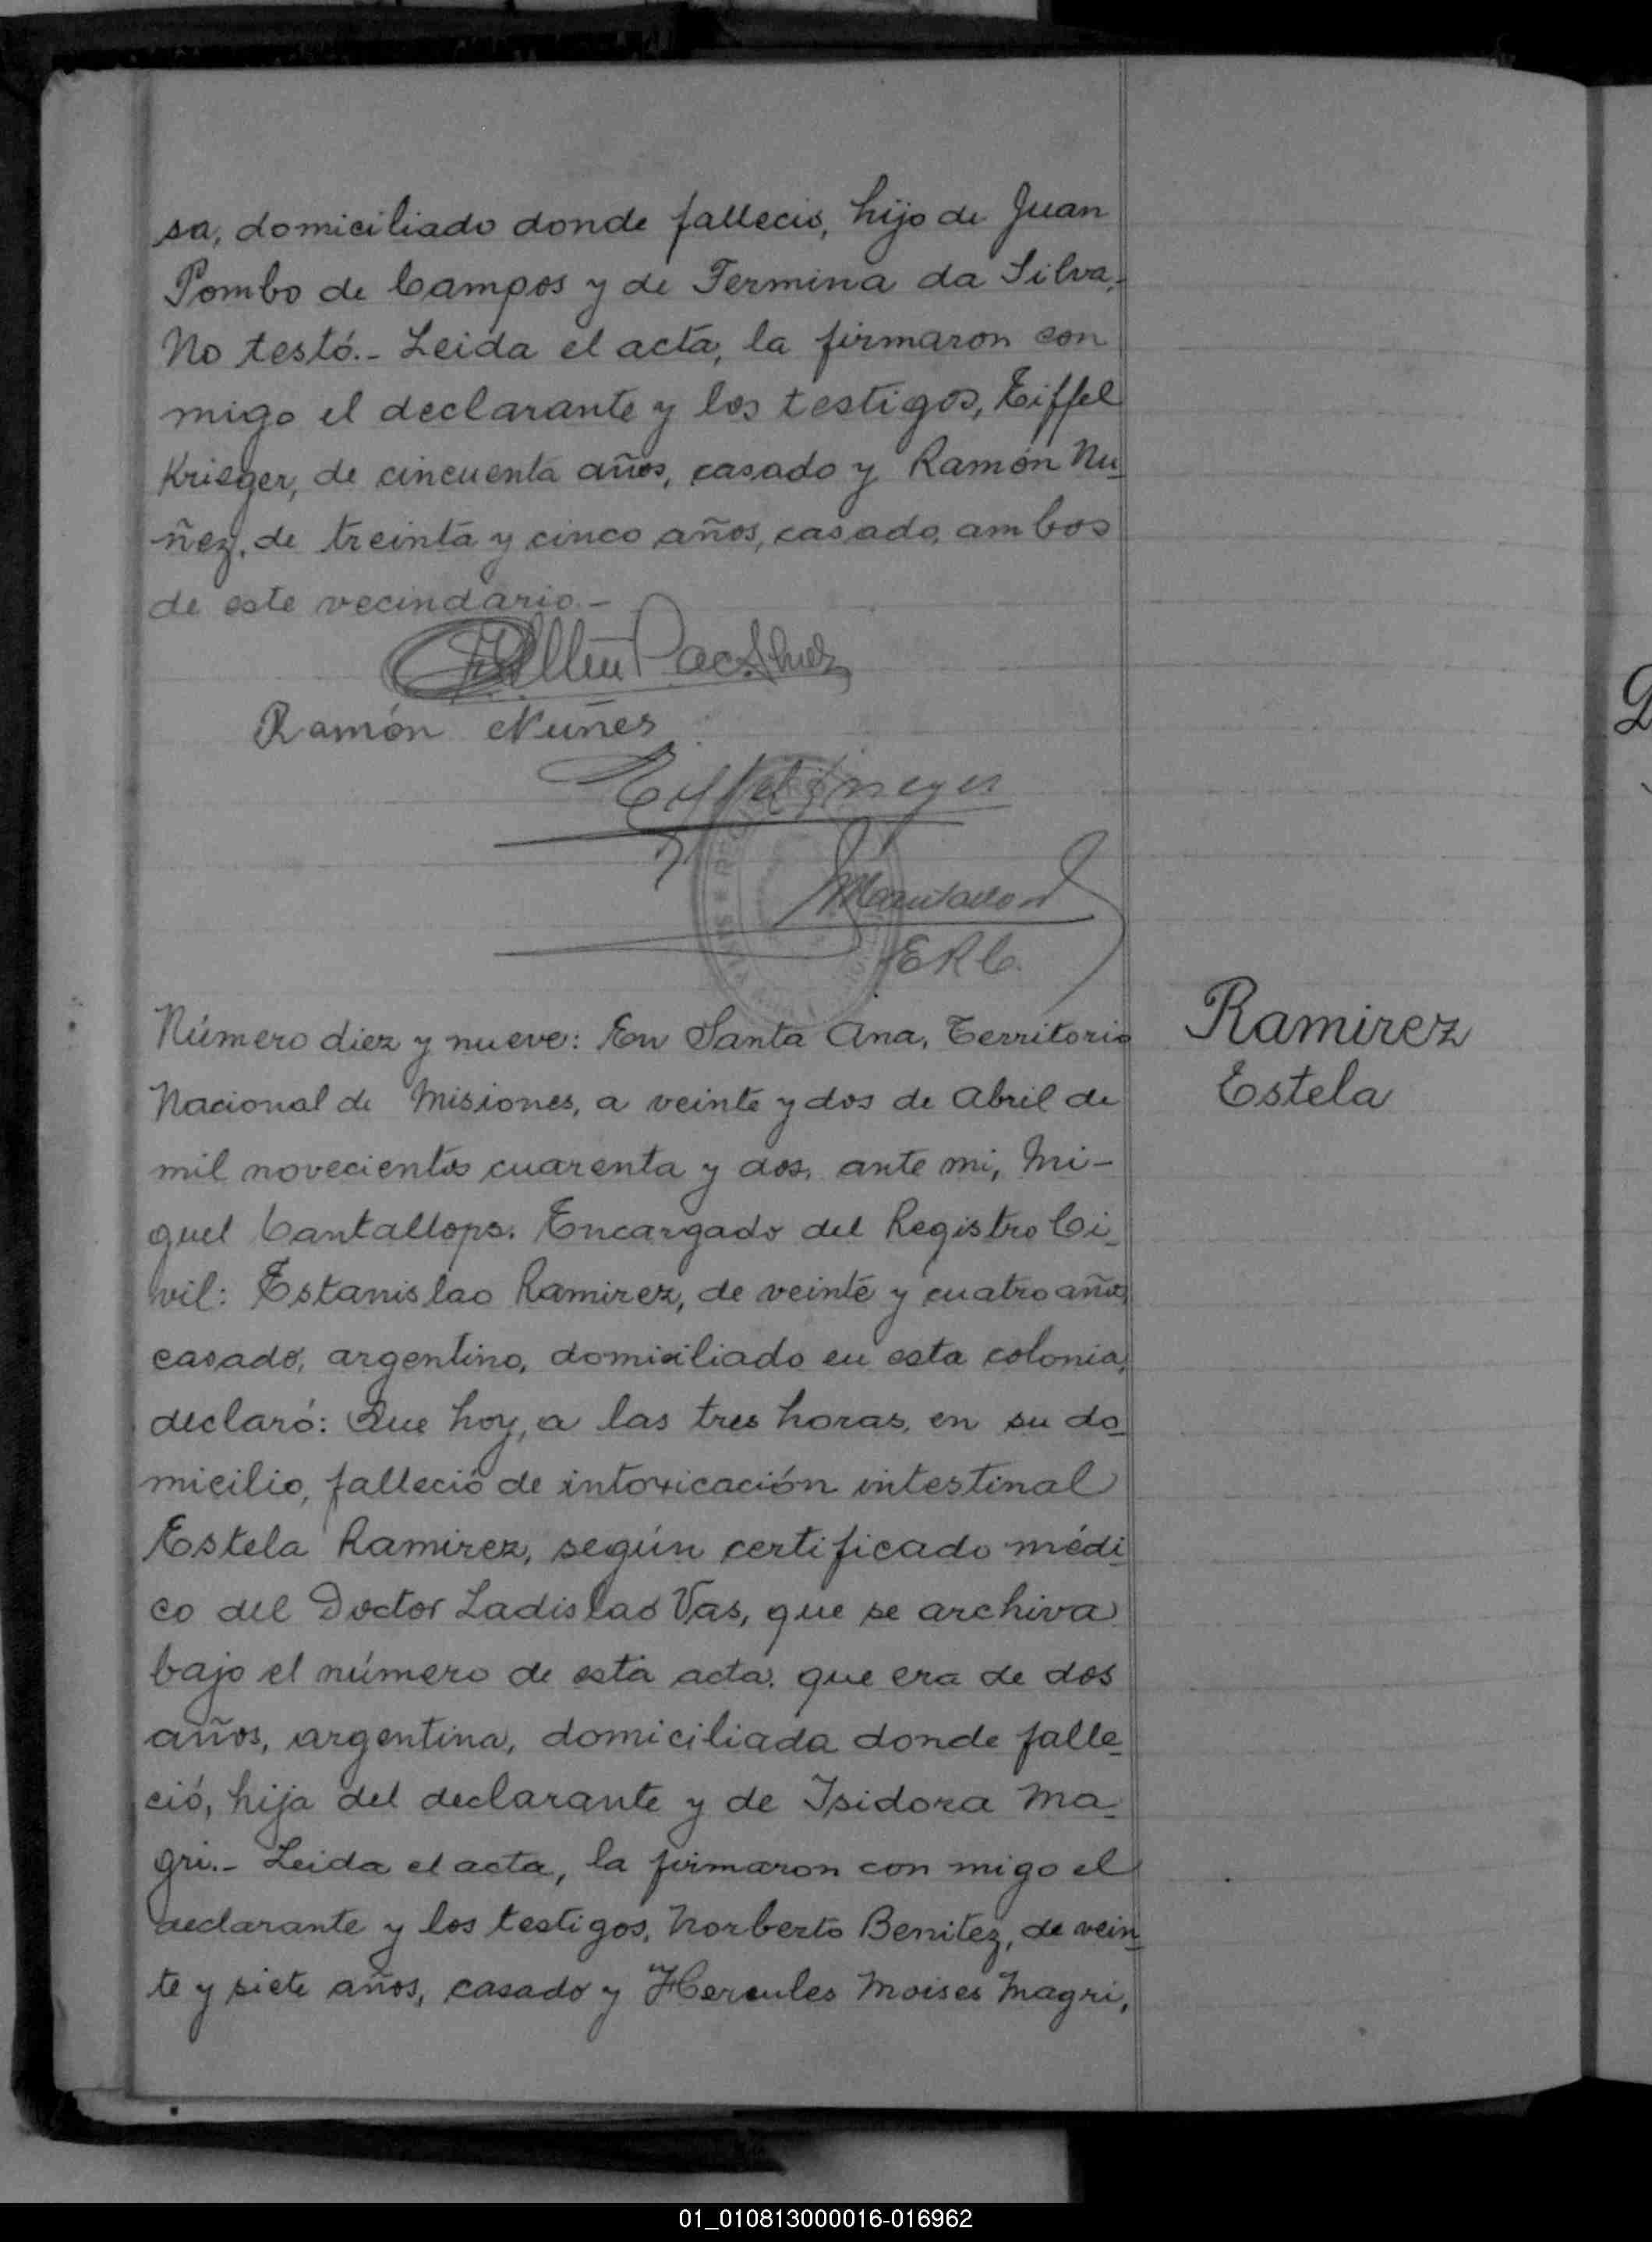 sa, domiciliado donde fallecio, hijo de Juan
Pombo de Campos y de Termina da Silva.-
No testó.- Leida el acta, la firmaron con
migo el declarante y los testigos, Eiffel
Krieger, de cincuenta años, casado y Ramón Nu-
ñez, de treinta y cinco años, casado, ambos
de este vecindario.-
Ramón Nuñes
E.R.C.
Número diez y nueve: En Santa Ana, Territorio
Nacional de Misiones, a veinte y dos de Abril de
mil novecientos cuarenta y dos, ante mi, Mi-
guel Cantallops. Encargado del Registro Ci-
vil: Estanislao Ramirez, de veinte y cuatro años,
casado, argentino, domiciliado en esta colonia,
declaró: Que hoy, a las tres horas, en su do-
micilio, falleció de intoxicación intestinal
Estela Ramirez, según certificado médi-
co del Doctor Ladislao Vas, que se archiva
bajo el número de esta acta, que era de dos
años, argentina, domiciliada donde falle-
ció, hija del declarante y de Isidora Ma-
gri.- Leida el acta, la firmaron con migo el
declarante y los testigos, Norberto Benitez, de vein-
te y siete años, casado y Hercules Moises Magri,
Ramirez
Estela
01_010813000016-016962